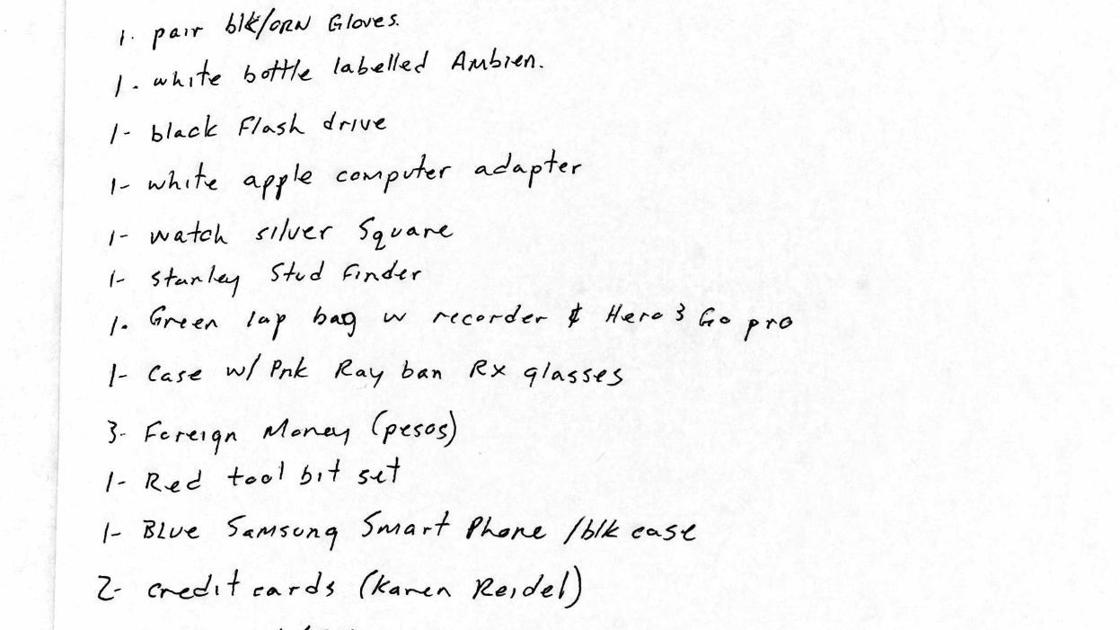 1. pair blk/ORN Gloves.
1. white bottle labelled Ambien.
1- black Flash drive
1- white apple computer adapter
1- watch silver Square
1- Stanley Stud Finder
1. Green lap bag w recorder & Hero 3 Go pro
1- Case w/ Pnk Ray ban Rx glasses
3- Foreign Money (pesos)
1- Red tool bit set
1- Blue Samsung Smart Phone /blk case
2- credit cards (Karen Reidel)